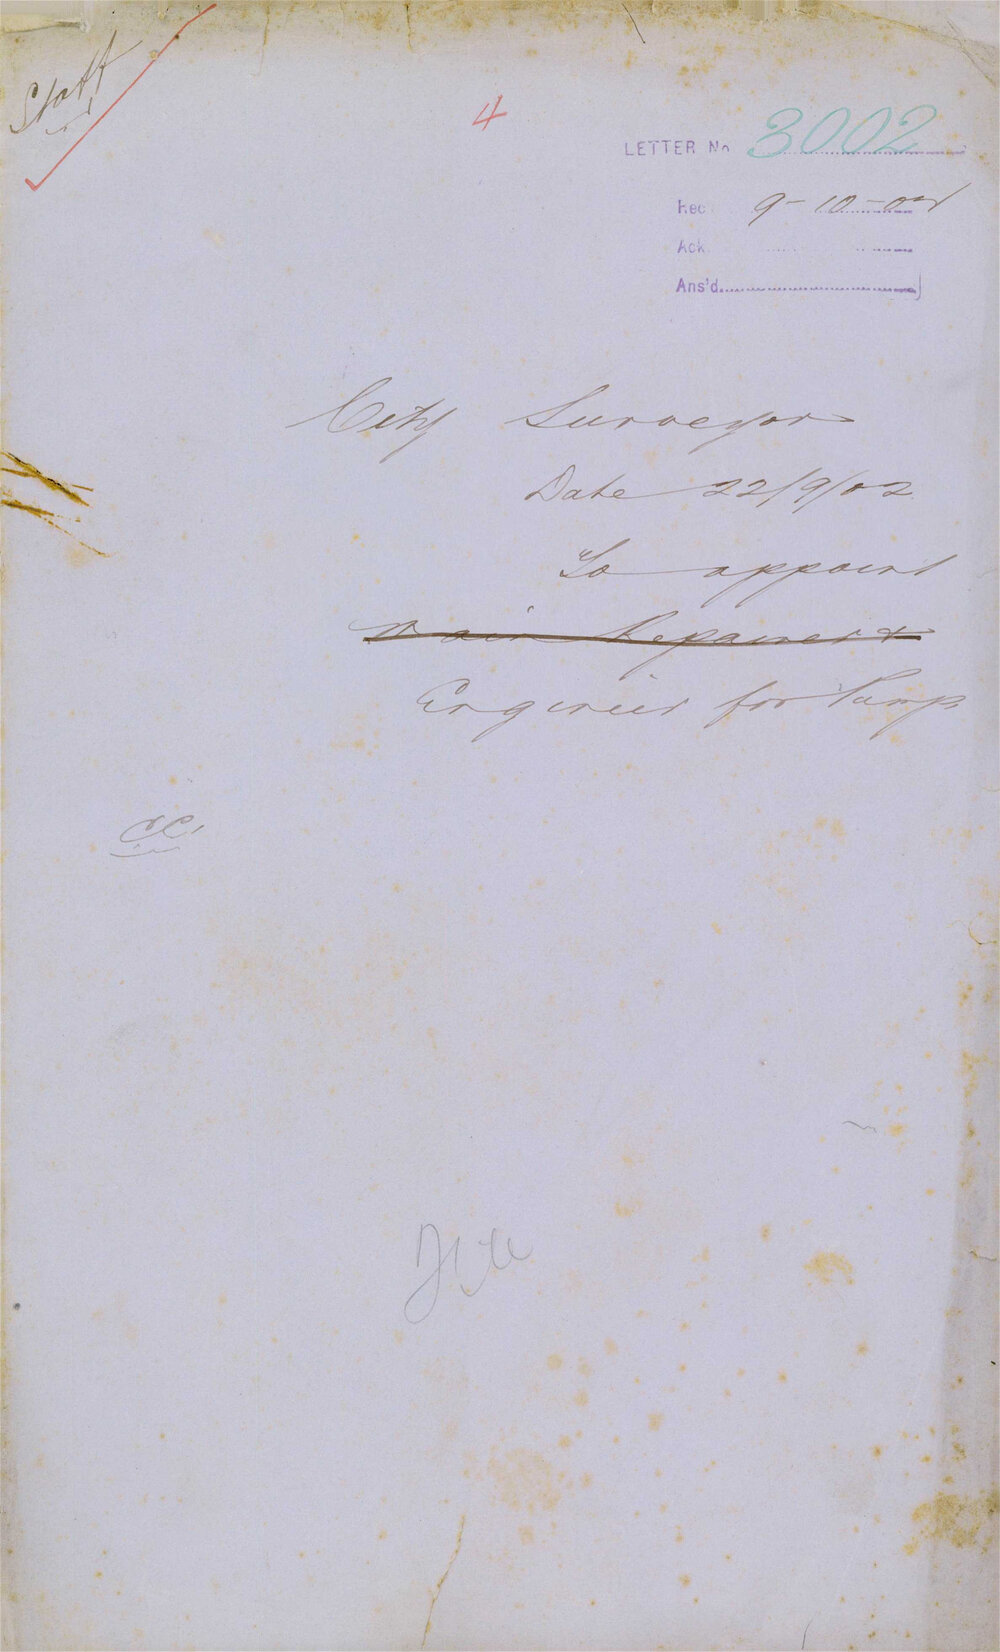 Staff
4
LETTER No 3002
Rec. 9-10-02
Ack.
Ans'd.
City Surveyor
Date 22/9/02
To appoint
Main Repairer &
Engineer for Pump
CC.
File